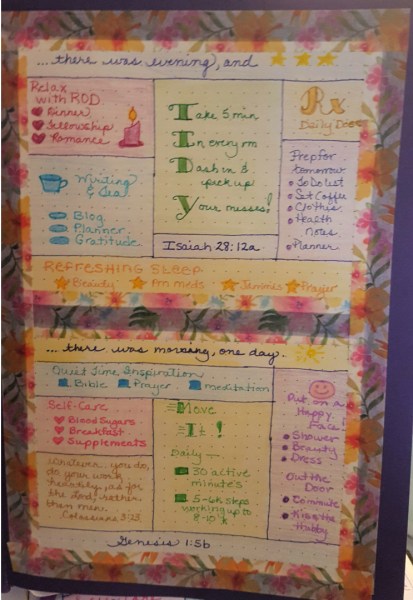 ... there was evening, and
Relax
with ROD
Dinner
Fellowship
Romance
Take 5 min
In every rm
Dash in &
pick up
Your messes!
Rx
Daily Dose
Writing
& Tea
Blog
Planner
Gratitude
Prep for
tomorrow
To Do list
Set Coffee
Clothes
Health
notes
Planner
Isaiah 28:12a
REFRESHING SLEEP
Beauty
Pm meds
Jammies
Prayer
... there was morning, one day.
Quiet Time Inspiration
Bible
Prayer
meditation
Self-Care
Blood Sugars
Breakfast
Supplements
Move
It!
Daily —
30 active
minutes
5-6k steps
working up to
8-10 k
Put on a
Happy
Face!
Shower
Beauty
Dress
Out the
Door
Commute
Kiss the
Hubby
Whatever you do,
do your work
heartily, as for
the Lord rather
than men.
Colossians 3:23
Genesis 1:5b